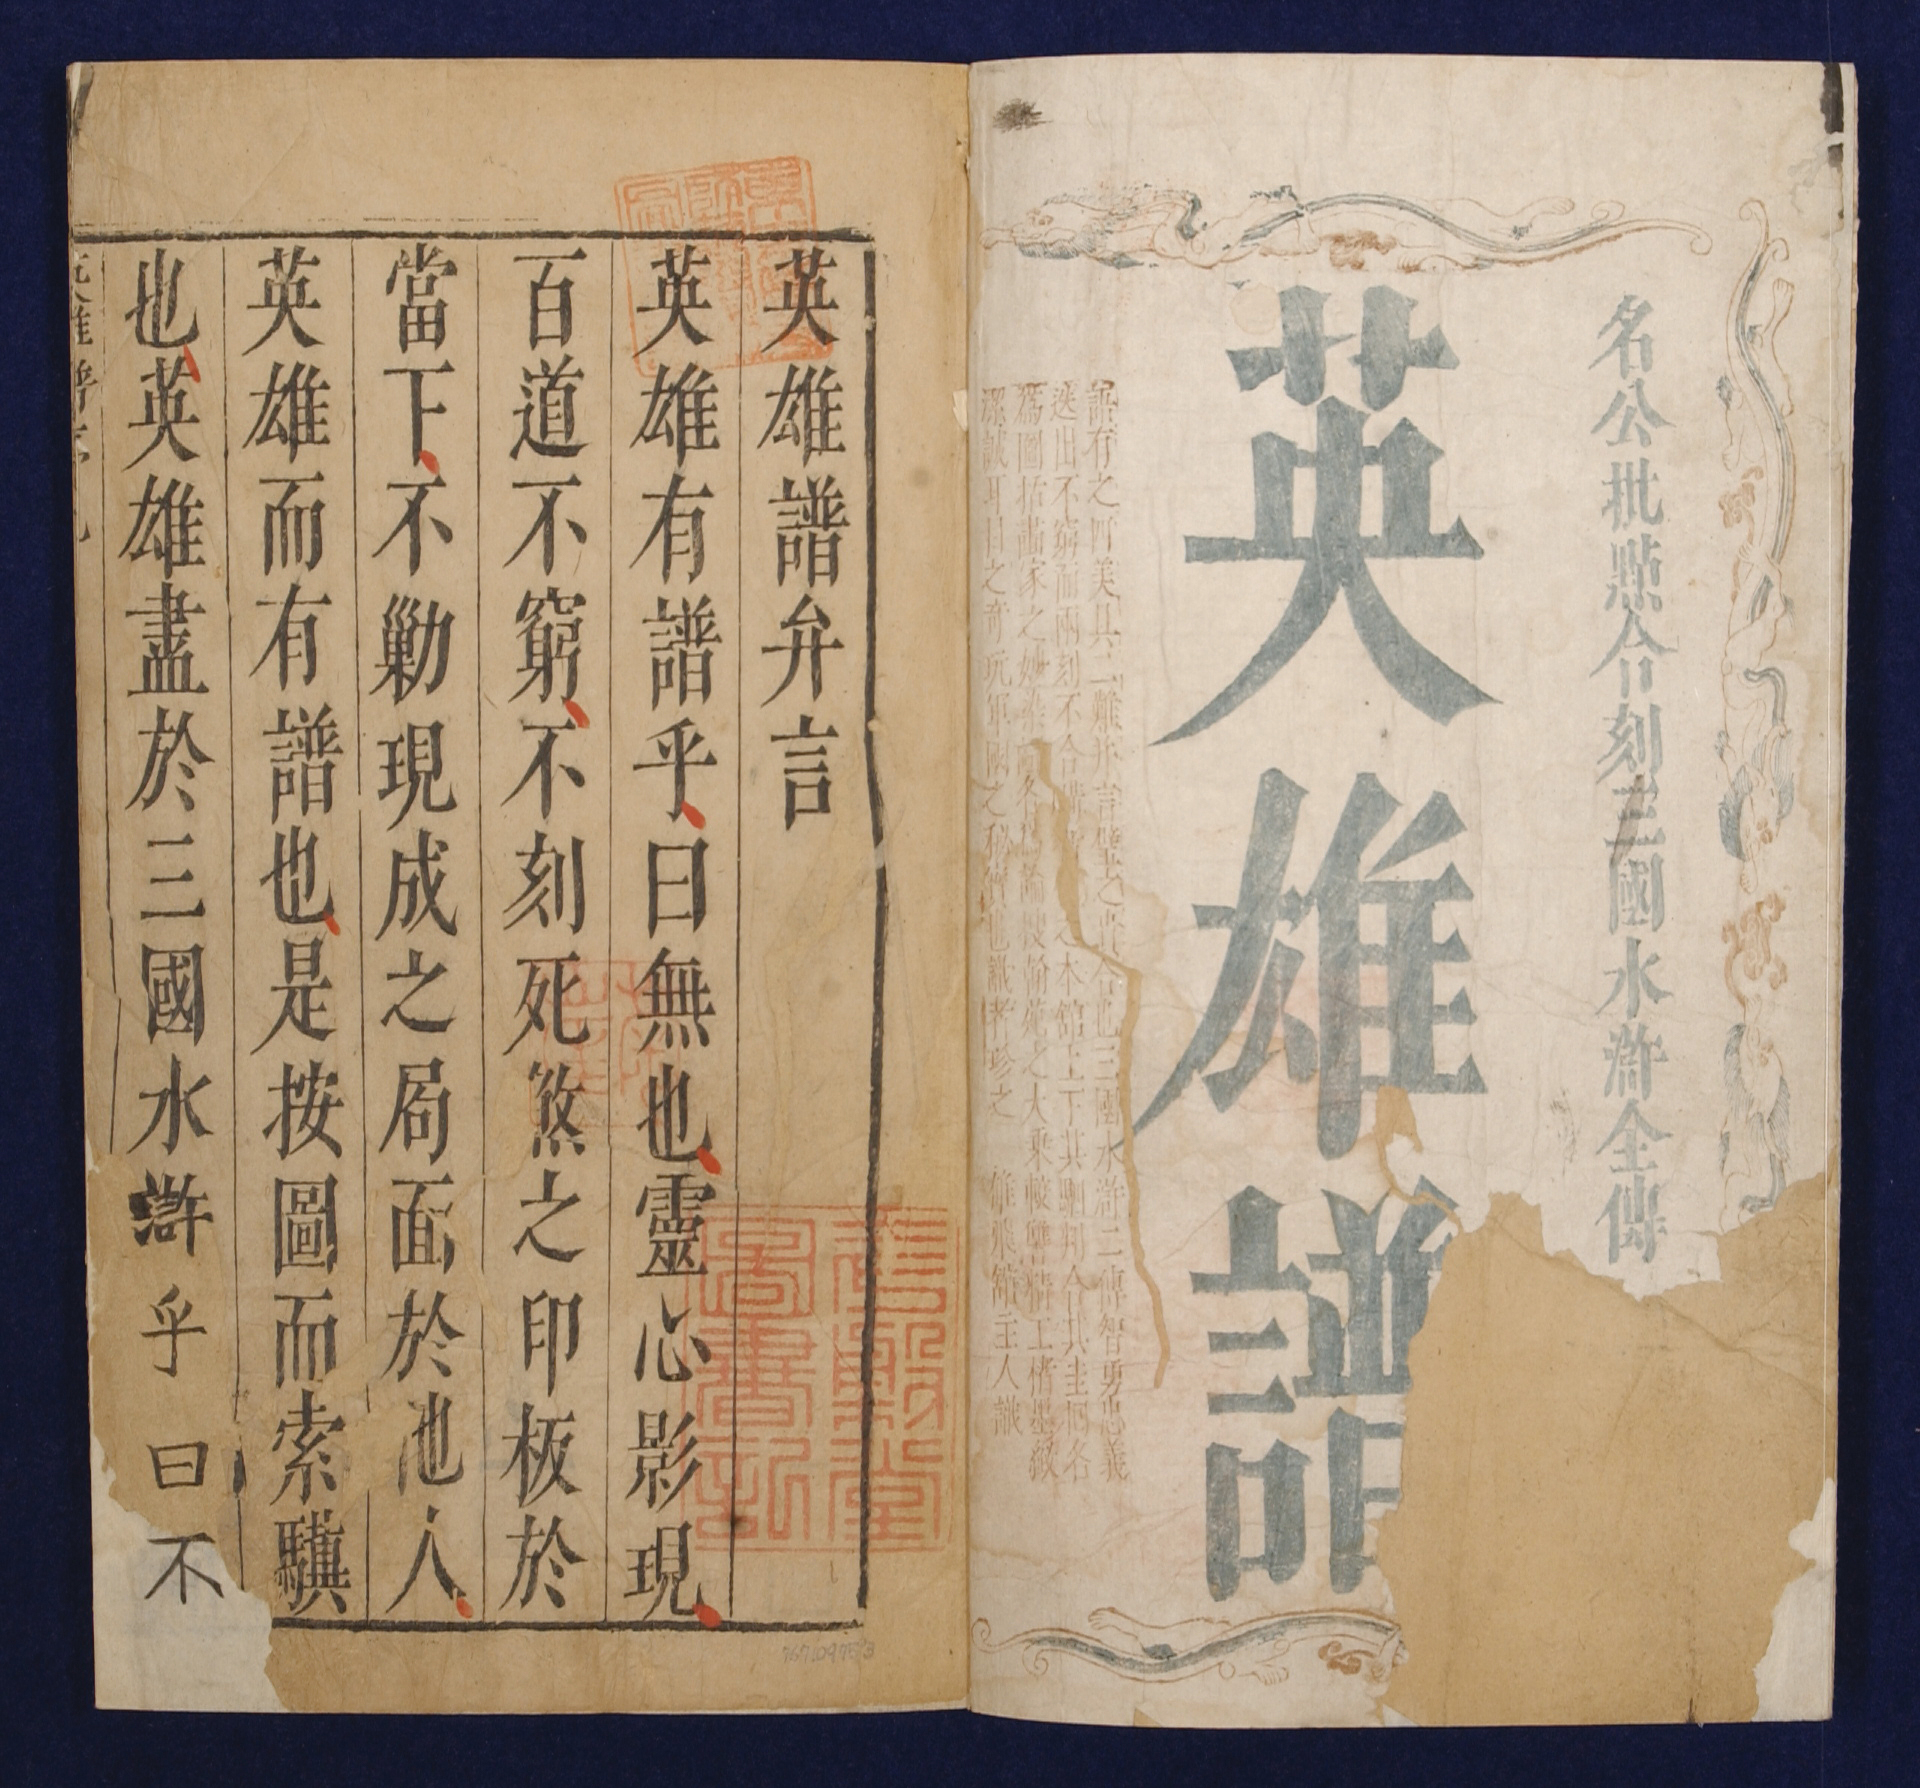 名公批點合刻三國水滸全傳
英雄譜
語有之四美具二難并言璧之貴合也三國水滸二傳智勇忠義
迭出不窮而兩刻不合購之本館上下其駟判合其圭各
為圖括畫家之妙各為論搜翰苑之大乘較讐精工楮墨緻
潔誠耳目之奇玩軍國之秘寶也識者珍之 雄飛館主人識
英雄譜弁言
英雄有譜乎、曰無也、靈心影現、
百道不窮、不刻死煞之印板於
當下、不勦現成之局面於池人、
英雄而有譜也、是按圖而索驥
也、英雄盡於三國水滸乎曰不